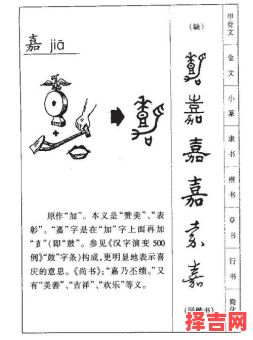 嘉 jiā
原作“加”。本义是“赞美”、“表
彰”。“嘉”字是在“加”字上面再加
“壴”(即“鼓”。参见《汉字演变 500
例》“鼓”字条)构成,更明显地表示喜
庆的意思。《尚书》:“嘉乃丕绩。”又
有“美善”、“吉祥”、“欢乐”等义。
(缺)
嘉
嘉
嘉
嘉
(同楷书)
甲骨文
金文
小篆
隶书
楷书
草书
行书
简化
择吉网